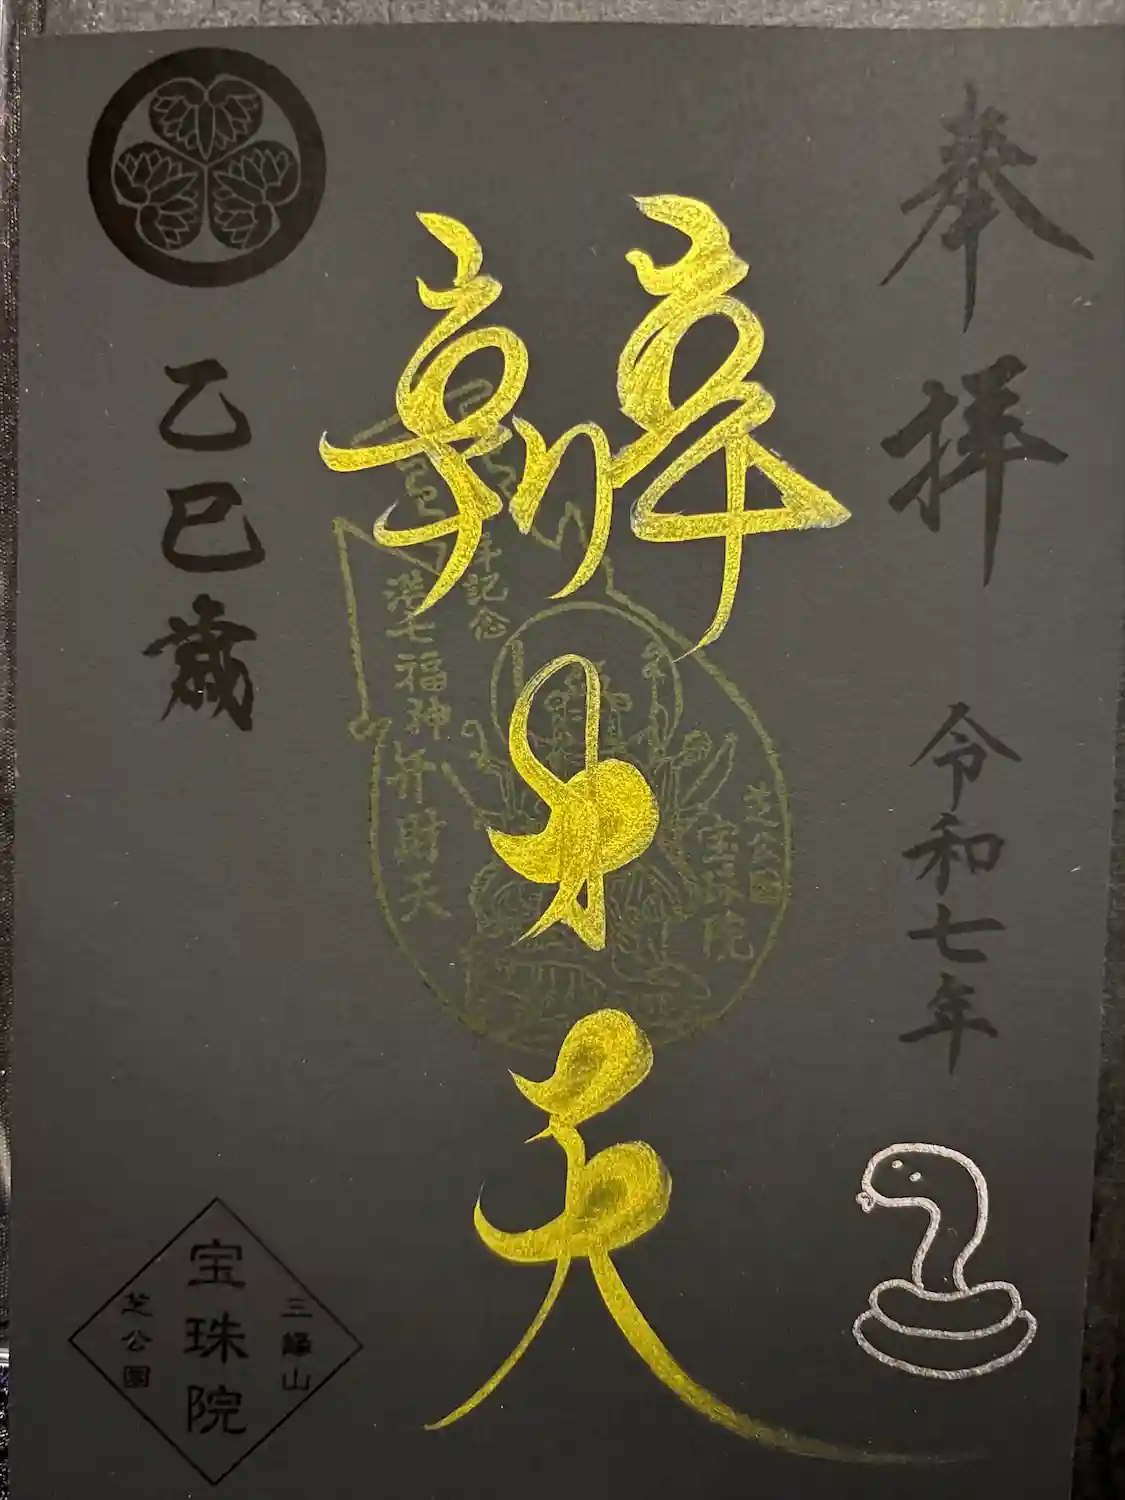 奉拝
令和七年
辨才天
年記念
港七福神弁財天
芝公園
宝珠院
乙巳歳
三縁山
宝珠院
芝公園